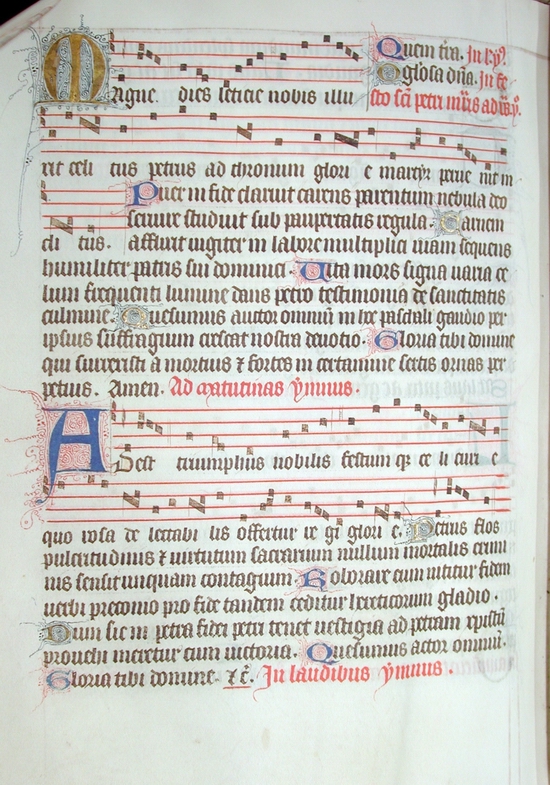 Quem tra. In ley?
O glosa dna. In fe
Magne dies leticie nobis illu sto sci petri mris ad vsp.
xit celi tus petrus ad thronum glori e martyr perue nit in
Puer in fide claruit carens parentum nebula deo
seruire studuit sub paupertatis regula. Carnem
celi tus. afflixit iugiter in labore multiplici uiam sequens
humiliter patris sui dominici. Uita mors signa uaria ce
lum frequenti lumine dans petro testimonia de sanctitatis
culmine. Quesumus auctor omnium in hoc paschali gaudio per
ipsius suffragium crescat nostra deuotio. Gloria tibi domine
qui surrexisti a mortuis ⁊ fortes in certamine sertis ornas per
petuis. Amen. Ad matutinas ymnus.
Adest triumphus nobilis festum qz ce li curi e
quo rosa de lectabi lis offertur re gi glori e. Petrus flos
pulcritudinis ⁊ uirtutum sacrarium nullum mortalis crimi
nis sensit unquam contagium. Roborare cum nititur fidem
uerbi preconio pro fide tandem ceditur hereticorum gladio.
Dum sic in petra fidei petri tenet uestigia ad petram xpistum
prouehi meretur cum uictoria. Quesumus actor omnium.
Gloria tibi domine. ⁊ c. In laudibus ymnus.